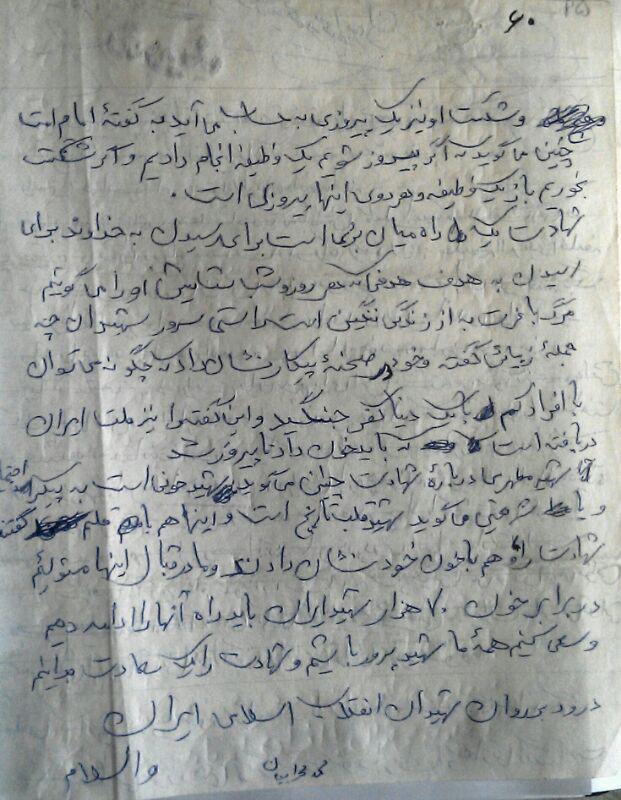 ۶۰
و شکست او نیز یک پیروزی به حساب می آید به گفتهٔ امام است
چنین می گوید که اگر پیروز شویم یک وظیفه انجام دادیم و اگر شکست
بخوریم باز یک وظیفه و هر دوی اینها پیروزی است .
شهادت یک راه میان بری است برای رسیدن به خداوند برای
رسیدن به هدف هدفی که هر روز و شب ستایش او را می گوئیم
مرگ با عزت به از زندگی ننگین است راستی سرور شهیدان چه
جملهٔ زیبائی گفته و خود در صحنهٔ پیکار نشان داد که چگونه می توان
با افراد کم با یک دنیا کفر جنگید و این گفته را نیز ملت ایران
دریافته است که باید خون داد تا پیروز شد
شهید مطهری دربارهٔ شهادت چنین می گوید شهید خونی است به پیکر
و یا شریعتی می گوید شهید قلب تاریخ است و اینها هم با قلم گفتند
شهادت را و هم با خون خود نشان دادند و ما در قبال اینها مسئولیم
در برابر خون ۷۰ هزار شهید ایران باید راه آنها را ادامه دهیم
و سعی کنیم همهٔ ما شهید پرور باشیم و شهادت را یک سعادت بدانیم
درود بر روان شهیدان انقلاب اسلامی ایران
والسلام